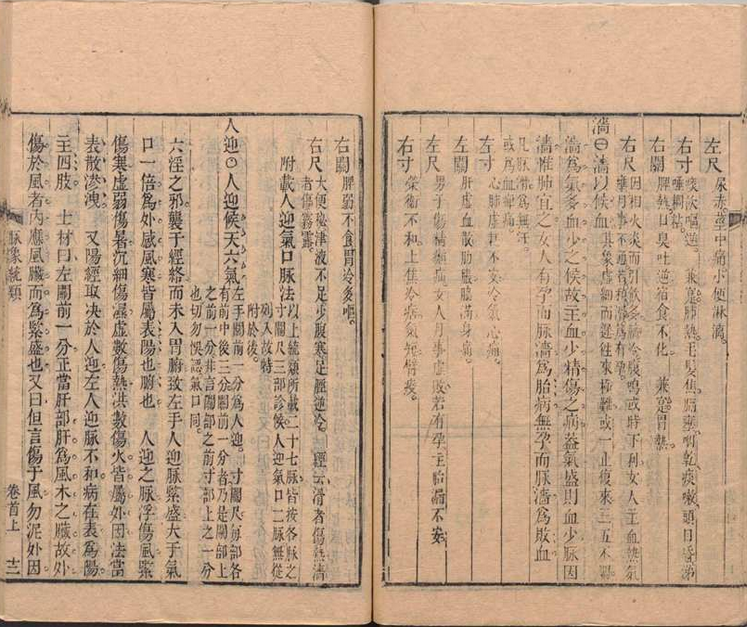 左尺 尿赤莖中痛小便淋漓
右寸 痰飲嘔逆 兼寬肺熱毛髮焦膈壅咽乾痰嗽頭目昏涕
唾稠粘
右關 脾熱口臭吐逆宿食不化 兼寬胃熱
右尺 因相火炎而引飲多臍冷腹鳴或時下利女人主血熱氣
壅月事不通若和滑為有孕
濇曰濇以候血 其象虛細而遲往來極難或一止復來三五不調
濇為氣多血少之候故主血少精傷之病蓋氣盛則血少脈因
濇惟肺宜之女人有孕而脈濇為胎病無孕而脈濇為敗血
凡脈濇為無汗
或為血痺痛
左寸 心肺虛耗不安冷氣心痛
左關 肝虛血散肋脹脇滿身痛
左尺 男子傷精癩疝女人月事虛敗若有孕主胎漏不安
右寸 榮衛不和上焦冷痞氣短臂痠
右關 脾弱不食胃冷多嘔
右尺 大便秘津液不足少腹寒足脛逆冷 經云滑者傷熱濇
者傷霧露
附載人迎氣口脈法 以上統類所載二十七脈皆按各脈之
寸關尺三部診候人迎氣口二脈無從
列入故特
附於後
人迎〇人迎候天六氣 左手關前一分為人迎寸關尺每部各
有前中後三分關前一分者乃是關部上
之前一分非言關部之前寸部上之一分
也切勿悞認氣口同
六淫之邪襲于經絡而未入胃腑致左手人迎脈緊盛大于氣
口一倍為外感風寒皆屬表陽也腑也 人迎之脈浮傷風緊
傷寒虛弱傷暑沉細傷濕虛數傷熱洪數傷火皆屬外因法當
表散滲洩 又陽經取決於人迎左人迎脈不和病在表為陽
主四肢 士材曰左關前一分正當肝部肝為風木之臟故外
傷於風者內應風臟而為緊盛也又曰但言傷于風勿泥外因
脈象統類
卷首上
十二